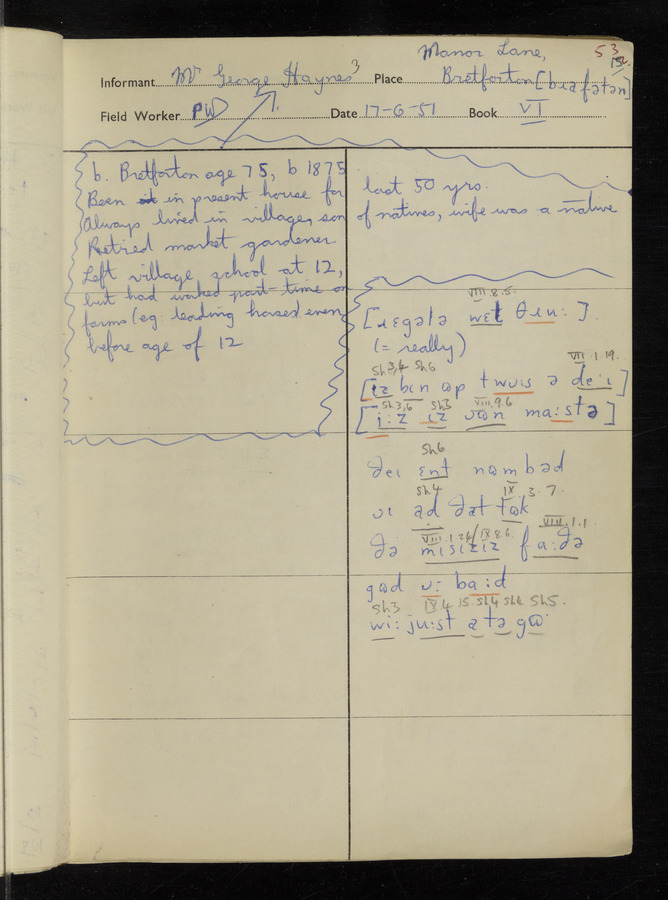 Manor Lane,
53
Informant Mr George Haynes 3 Place Bretforton [bɹafətən]
Field Worker PWD 1. Date 17-6-51 Book VI
b. Bretforton age 75, b 1875
Been in present house for last 50 yrs.
Always lived in village, son of natives, wife was a native
Retired market gardener
Left village school at 12,
but had worked part-time on
farms (eg. leading horses) even
before age of 12
VIII 8.5.
[ɹɛgələ wɛt θɪn: ]
(= really)
Sh 3,4 Sh6 VII.1.19.
[ɪz bɪn ɷp twʊɪs ə de:ɪ]
Sh3,6 Sh3 VIII.9.6
[i:z ɪz ɷɷn ma:stə]
Sh6
ðeɪ ɛnt nɷmbəd
Sh4 IX.3.7.
ʊɪ ad ðat tɷk
VIII.1.24/IX8.6. VIII.1.1
ðə mɪsɪzɪz fa:ðə
gɷd ʊ: ba:d
Sh3 IX.4.15. Sh4 Sh4 Sh5.
wi: ju:st a tə gɷ